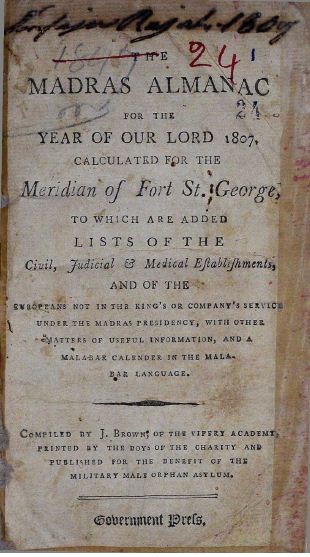 1807
24
THE
MADRAS ALMANAC
FOR THE
24
YEAR OF OUR LORD 1807,
CALCULATED FOR THE
Meridian of Fort St. George,
TO WHICH ARE ADDED
LISTS OF THE
Civil, Judicial & Medical Establishments,
AND OF THE
EUROPEANS NOT IN THE KING'S OR COMPANY'S SERVICE
UNDER THE MADRAS PRESIDENCY, WITH OTHER
MATTERS OF USEFUL INFORMATION, AND A
MALABAR CALENDER IN THE MALA-
BAR LANGUAGE.
COMPILED BY J. BROWN, OF THE VIPERY ACADEMY,
PRINTED BY THE BOYS OF THE CHARITY AND
PUBLISHED FOR THE BENEFIT OF THE
MILITARY MALE ORPHAN ASYLUM.
Government Press.